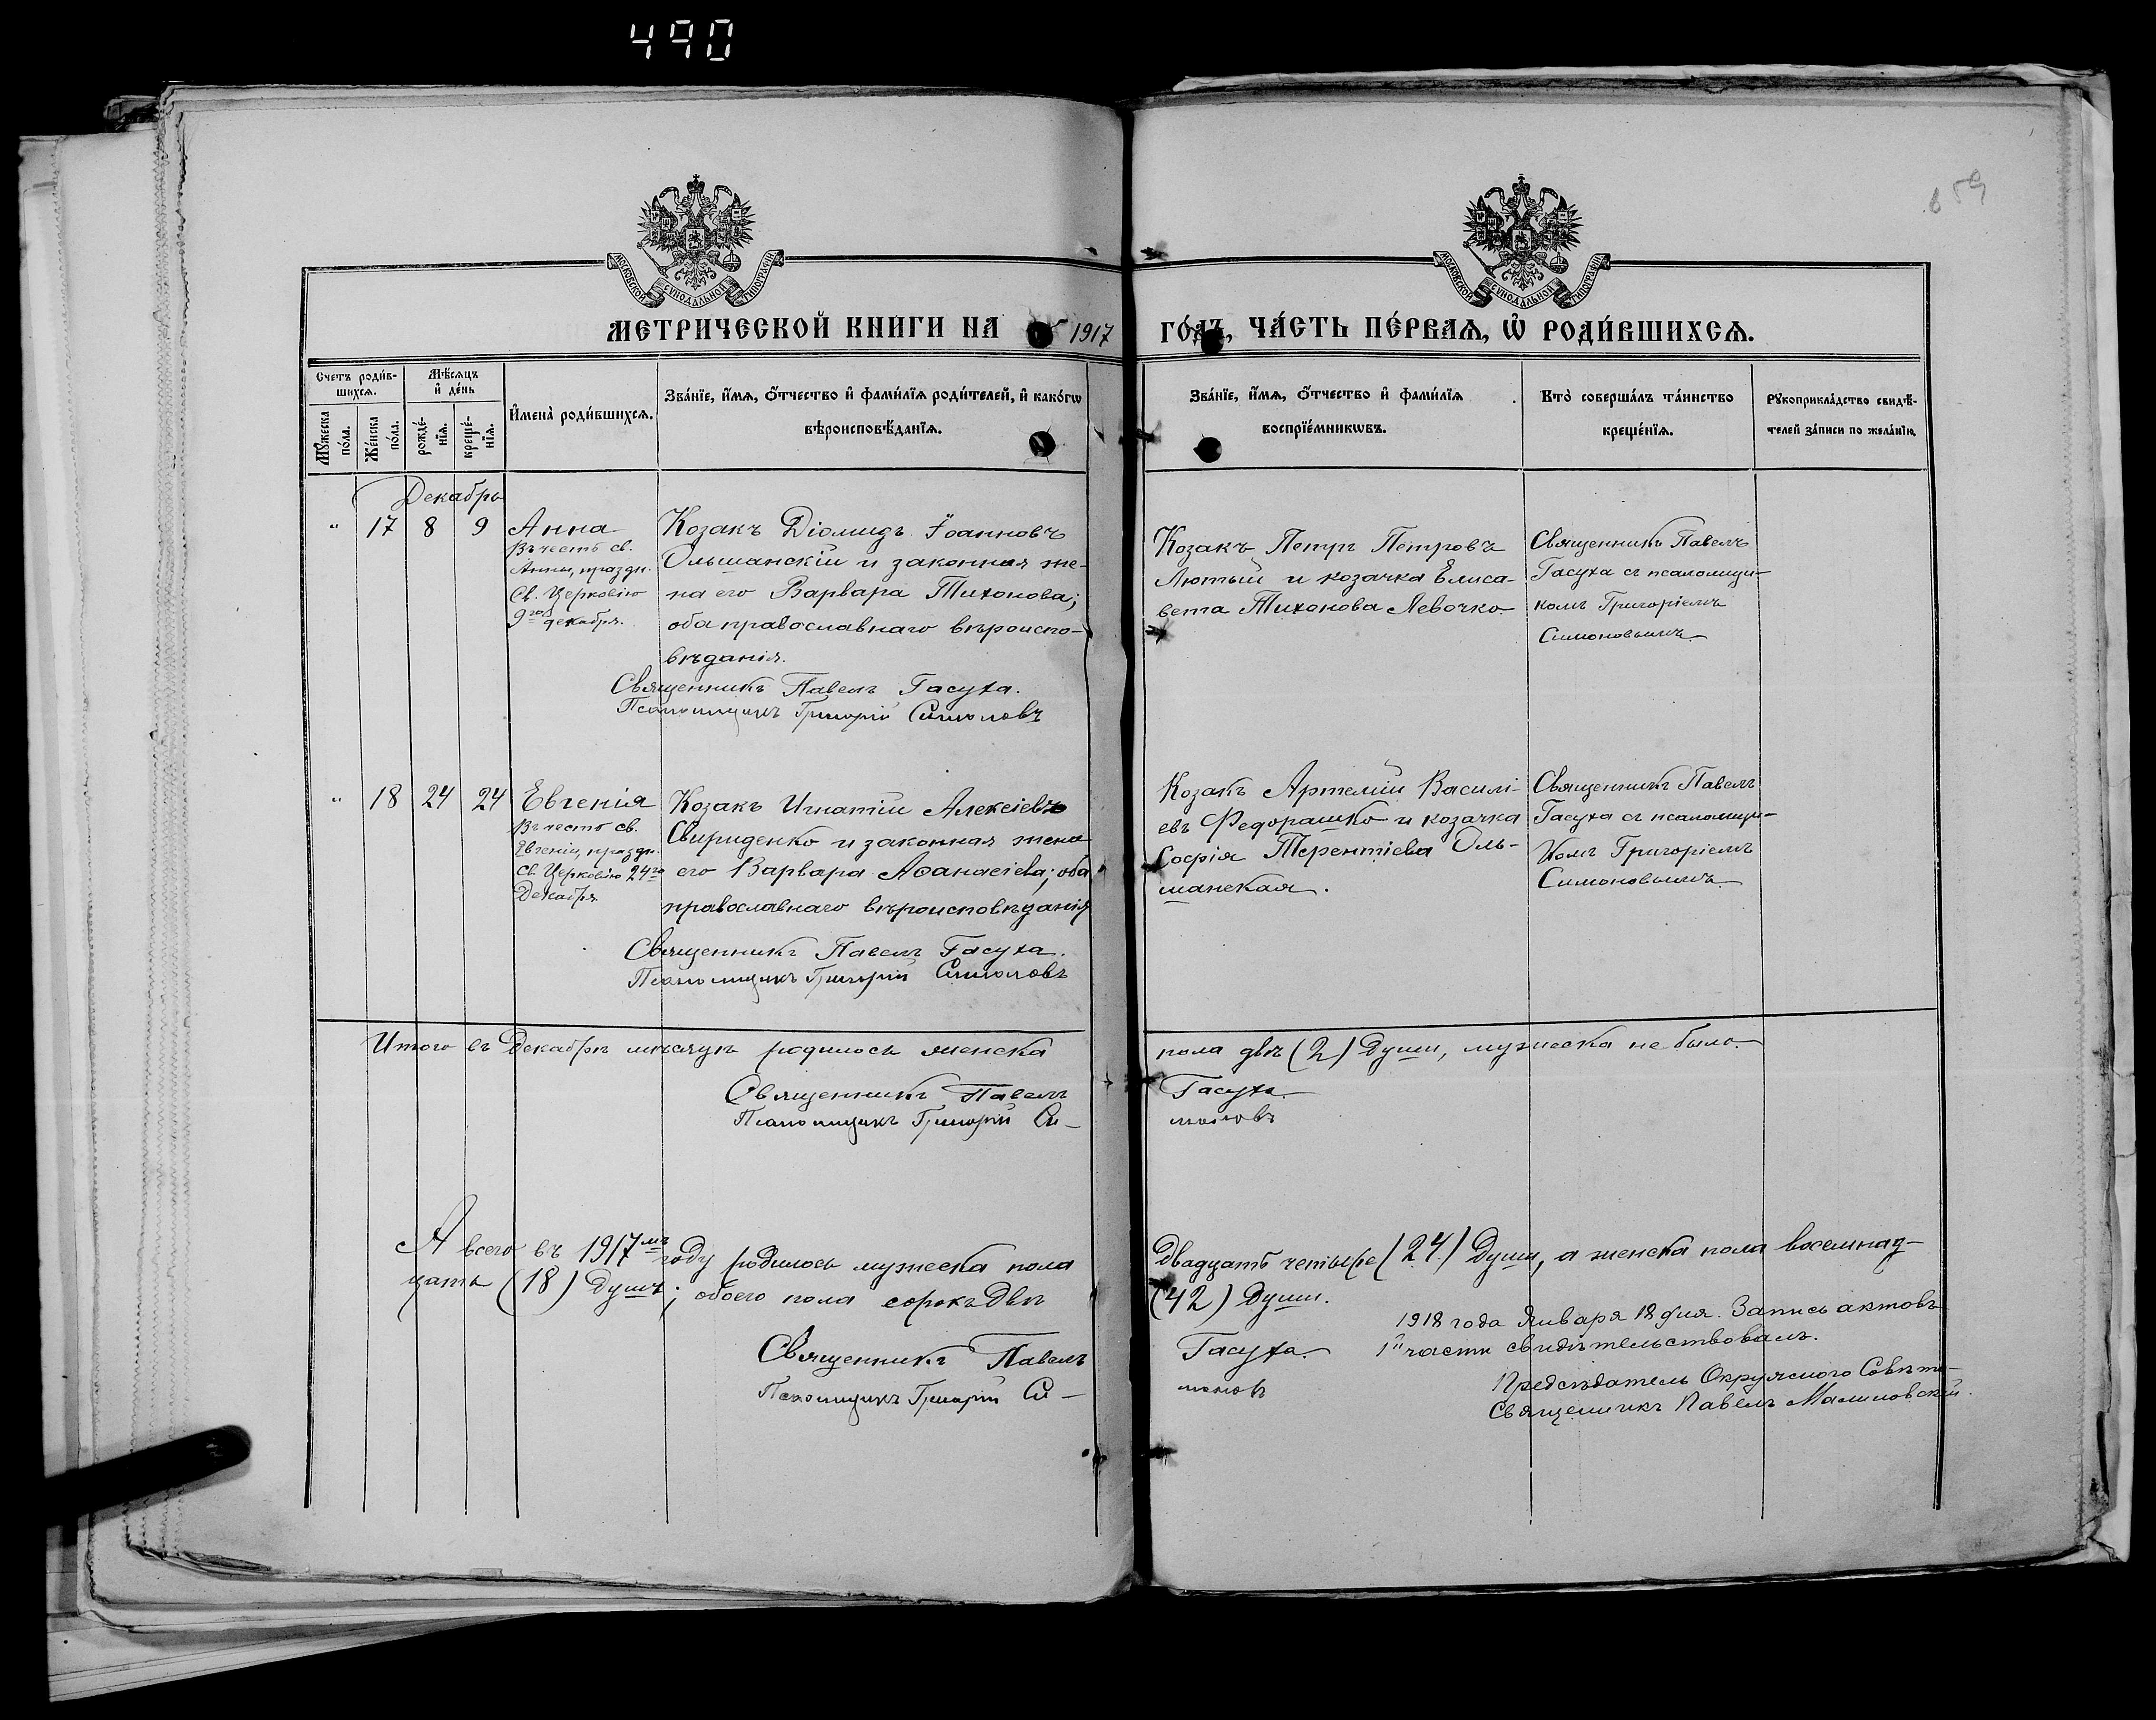 490
59
МОСКОВСКОЙ СУНОДАЛЬНОЙ ТИПОГРАФІИ
МОСКОВСКОЙ СУНОДАЛЬНОЙ ТИПОГРАФІИ
МЕТРИЧЕСКОЙ КНИГИ НА 1917 ГО́ДЪ, ЧА́СТЬ ПЕ́РВАѦ, Ѡ҆ РОДИ́ВШИХСѦ.
Счетъ роди́в-
шихсѧ.
Мꙋжеска по́ла.
Же́нска по́ла.
Мѣ́сѧцъ
и҆ де́нь
рожде́-
нїѧ.
креще́-
нїѧ.
И҆мена̀ роди́вшихсѧ.
Зва́нїе, и҆́мѧ, ѻ҆́тчество и҆ фами́лїѧ роди́телей, и҆ како́гѡ
вѣроисповѣ́данїѧ.
Зва́нїе, и҆́мѧ, ѻ҆́тчество и҆ фами́лїѧ
воспрїе́мникѡвъ.
Кто̀ соверша́лъ та́инство
креще́нїѧ.
Рꙋкоприкла́дство свидѣ́-
телей за́писи по жела́нїю.
Декабрь
" 17 8 9
Анна
Въ честь св.
Анны, праздн.
Св. Церковію
9го декабря.
Козакъ Діомидъ Іоанновъ
Ольшанскій и законная же-
на его Варвара Тихонова;
оба православнаго вѣроиспо-
вѣданія.
Священникъ Павелъ Гасуха.
Псаломщикъ Григорій Симоновъ
Козакъ Петръ Петровъ
Лютый и козачка Елиса-
вета Тихонова Левочко
Священникъ Павелъ
Гасуха съ псаломщи-
комъ Григоріемъ
Симоновымъ.
" 18 24 24
Евгенія
Въ честь св.
Евгеніи, праздн.
Св. Церковію 24го
Декабря
Козакъ Игнатій Алексіевъ
Свириденко и законная жена
его Варвара Аѳанасіева; оба
православнаго вѣроисповѣданія
Священникъ Павелъ Гасуха.
Псаломщикъ Григорій Симоновъ
Козакъ Артемій Василі-
евъ Федорашко и козачка
Софія Терентіева Оль-
шанская.
Священникъ Павелъ
Гасуха съ псаломщи-
комъ Григоріемъ
Симоновымъ.
Итого въ Декабрѣ мѣсяцѣ родилось женска пола двѣ (2) души, мужеска не было.
Священникъ Павелъ Гасуха.
Псаломщикъ Григорій Си- моновъ
А всего въ 1917мъ году родилось мужеска пола двадцать четыре (24) души, а женска пола восемнад-
цать (18) душъ; обоего пола сорокъ двѣ (42) души.
Священникъ Павелъ Гасуха.
Псаломщикъ Григорій Си- моновъ
1918 года Января 18 дня. Запись актовъ
1й части свидѣтельствовалъ.
Предсѣдатель Окружного Совѣта-
Священникъ Павелъ Малиновскій.